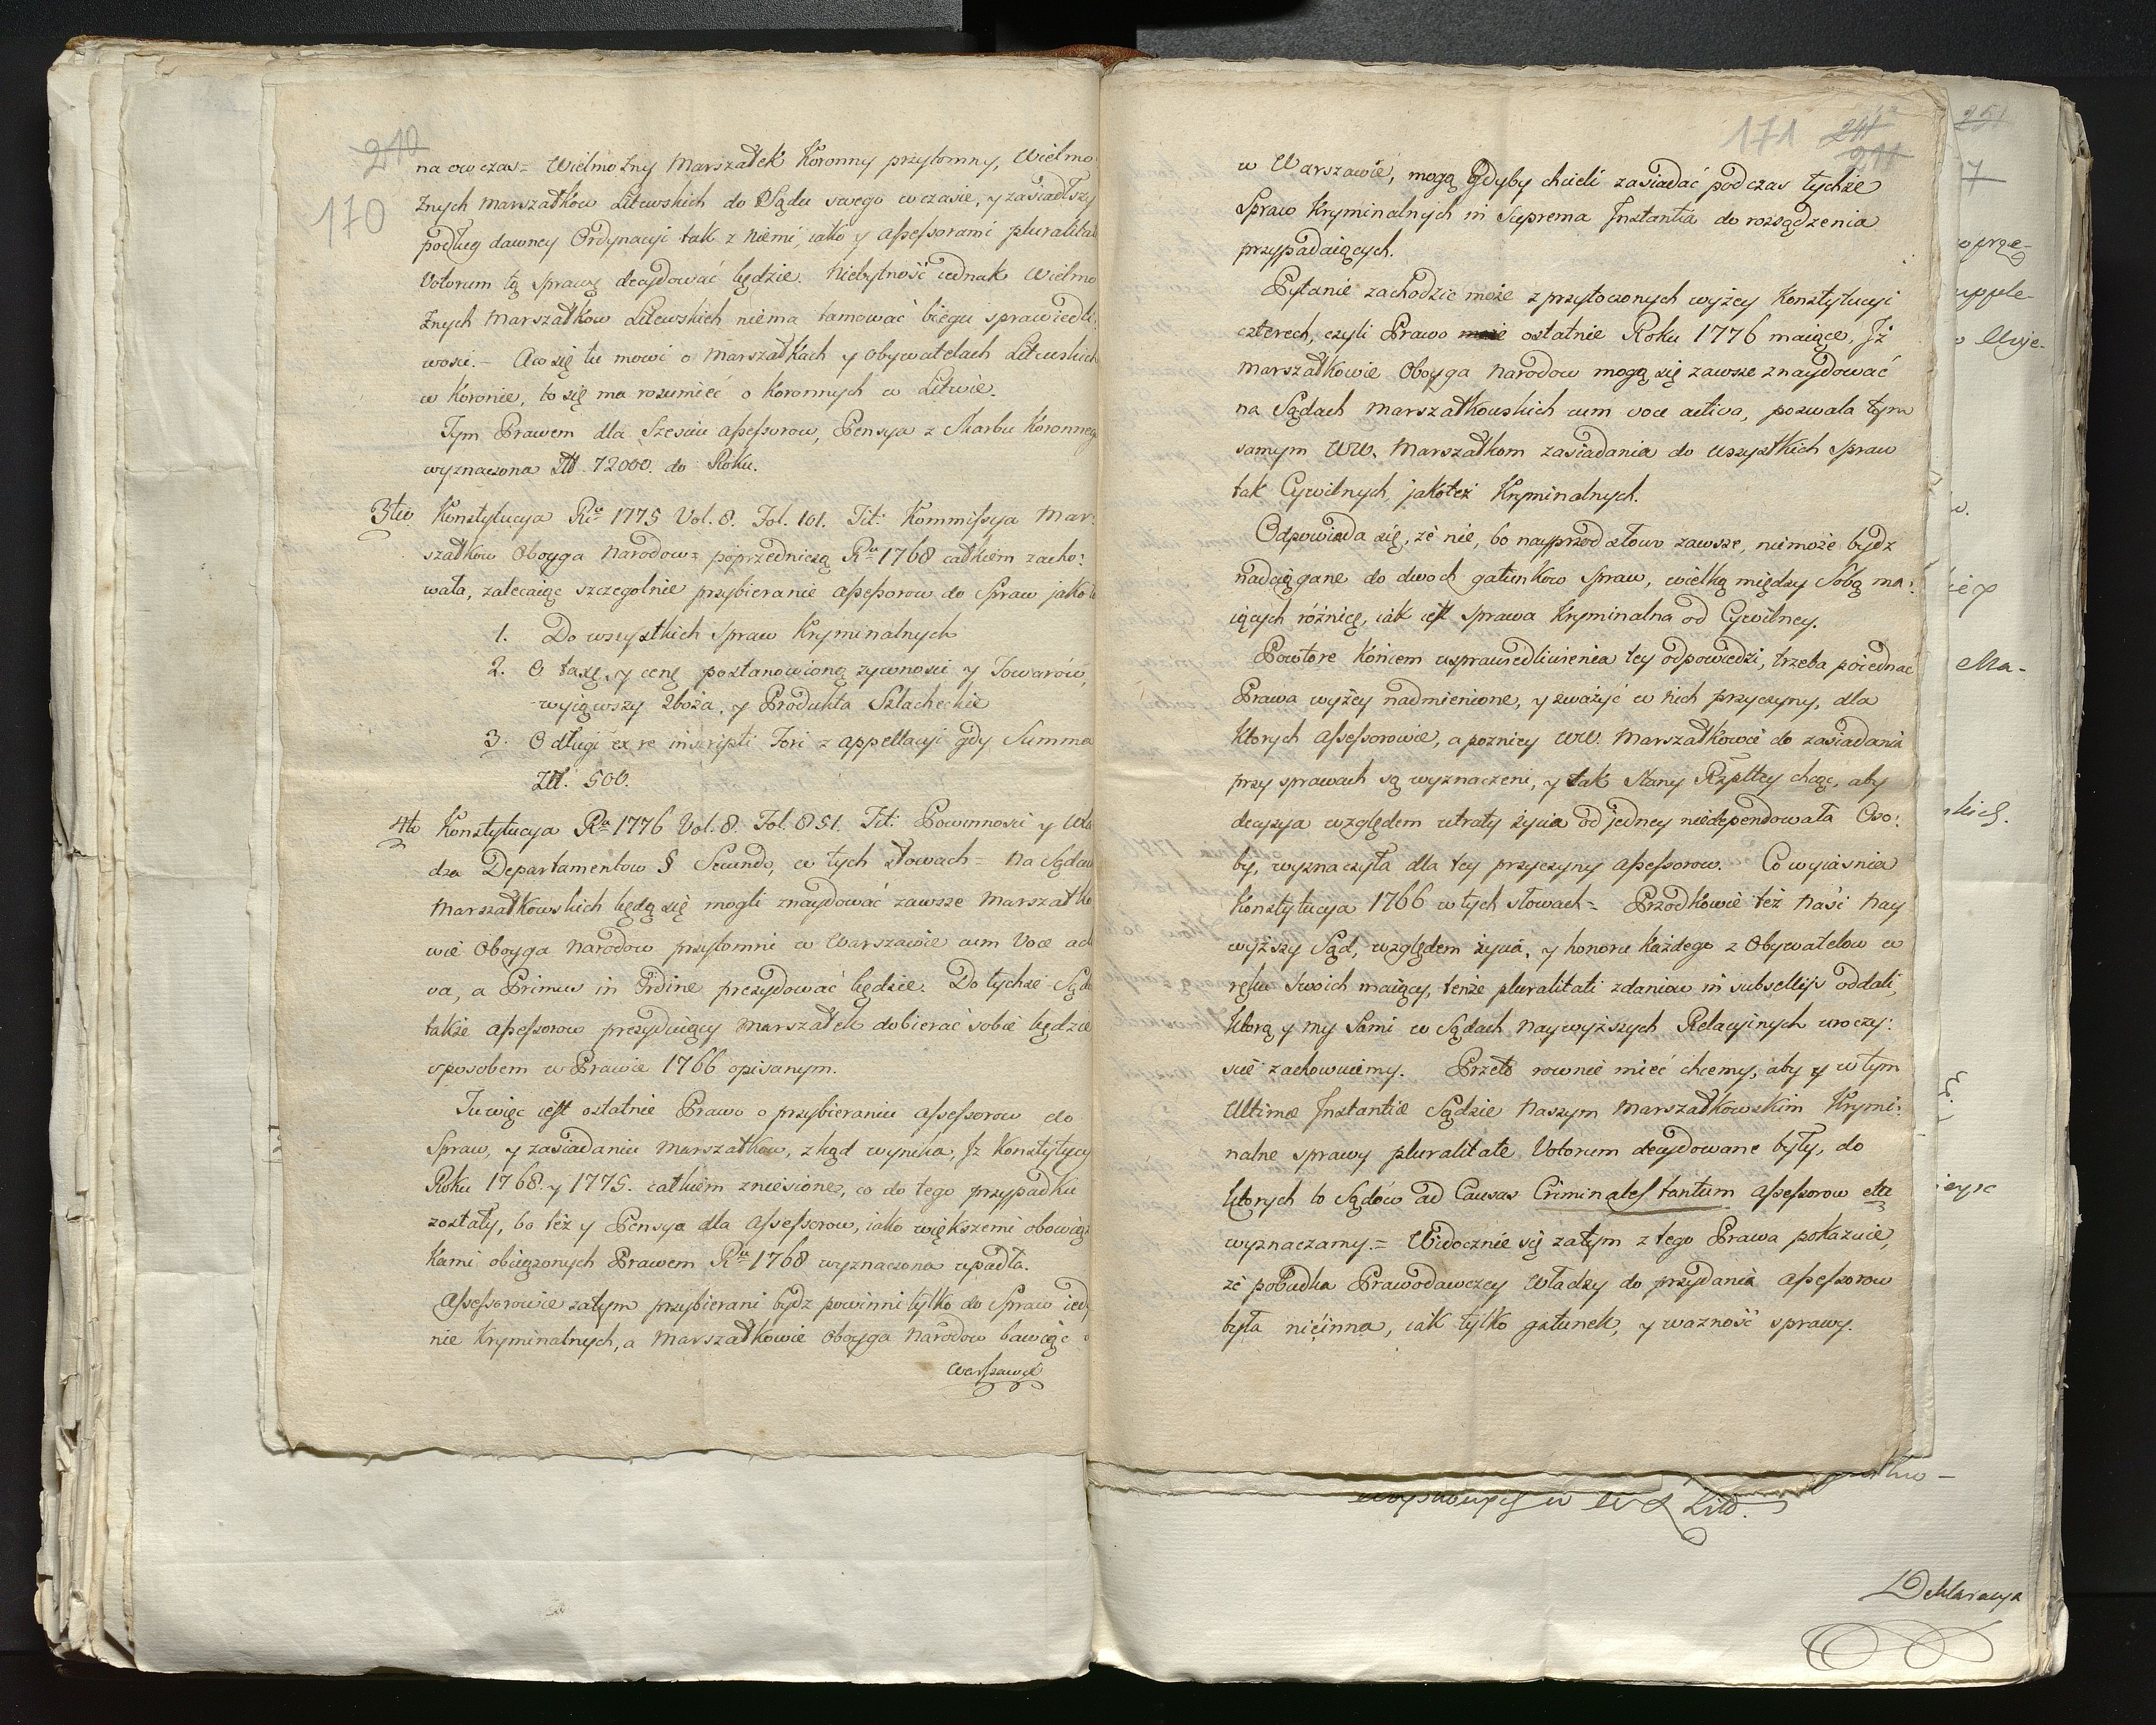 210
170
na ow czas = Wielmożny Marszałek Koronny przytomny, Wielmo
żnych Marszałkow Litewskich do Sądu swego wezasie, y zasiadłszy
podług dawney Ordynacyi tak z niemi iako y assessorami pluralitate
Votorum tę sprawę decydować będzie. Niebytność iednak Wielmo
żnych Marszałkow Litewskich niema tamować biegu sprawiedli:
wosci. – A co się tu mowi o Marszałkach y obywatelach Litewskich
w Koronie, to się ma rozumieć o Koronnych w Litwie.
Tym Prawem dla Szesciu assessorow, Pensya z Skarbu Koronnego
wyznaczona Złł. 72000. do Roku.
3tio Konstytucya Rku 1775 Vol. 8. Fol. 101. Tit: Kommissya Mar:
szałkow Oboyga Narodow = poprzedniczą Rku 1768 całkiem zacho:
wała, zalecaiąc szczegolnie przybieranie assessorow do Spraw jako to
1. Do wszystkich Spraw Kryminalnych
2. O taxę y cenę postanowioną zywnosci y Towarów,
wyiąwszy zboża, y Produkta Szlacheckie
3. O długi ex re inscripti Fori z appellacyi gdy Summa
Złł. 500.
4to Konstytucya Rku 1776 Vol. 8. Fol. 851. Tit: Powinnosci y Wła
dza Departamentow § Secundo, w tych słowach = Na Sądach
Marszałkowskich będą się mogli znaydować zawsze Marszałko
wie Oboyga Narodow przytomni w Warszawie cum Voce acti
va, a Primus in Ordine prezydować będzie. Do tychże Sądów
także assessorow prezyduiący Marszałek dobierać sobie będzie
sposobem w Prawie 1766 opisanym.
Tu więc iest ostatnie Prawo o przybieraniu assessorow do
Spraw, y zasiadaniu Marszałkow, zkąd wynika, Jż Konstytucye
Roku 1768. y 1775. całkiem zniesione, co do tego przypadku
zostały, bo też y Pensya dla Assessorow, iako większemi obowiąz
kami obciązonych Prawem Rku 1768 wyznaczona upadła.
Assessorowie zatym przybierani bydz powinni tylko do Spraw iedy
nie Kryminalnych, a Marszałkowie Oboyga Narodow bawiąc
Warszawie
171 241
211
w Warszawie, mogą gdyby chcieli zasiadać podczas tychże
Spraw Kryminalnych in Suprema Instantia do rozsądzenia
przypadaiących.
Pytanie zachodzic może z przytoczonych wyżey Konstytucyi
czterech, czyli Prawo ostatnie Roku 1776 maiące, Jż
Marszałkowie Oboyga Narodow mogą się zawsze znaydować
na Sądach Marszałkowskich cum voce activa, pozwala tym
samym WW. Marszałkom zasiadania do wszystkich Spraw
tak Cywilnych, jakoteż Kryminalnych.
Odpowiada się, że nie, bo nayprzod słowo zawsze, niemoże bydz
nadciągane do dwoch gatunkow Spraw, wielką między Sobą ma:
iących różnicę, iak iest sprawa Kryminalna od Cywilney.
Powtore Końcem usprawiedliwienia tey odpowiedzi, trzeba poiednać
Prawa wyżey nadmienione, y zważyć w nich przyczyny, dla
ktorych assessorowie, a pozniey WW. Marszałkowie do zasiadania
przy sprawach są wyznaczeni, y tak Stany Rzpltey chcąc, aby
decyzya względem utraty życia od jedney niedependowała Oso:
by, wyznaczyła dla tey przyczyny assessorow. Co wyiasnia
Konstytucya 1766 w tych słowach = Przodkowie też Nasi Nay
wyższy Sąd, względem życia, y honoru każdego z Obywatelow w
ręku swoich maiący, tenże pluralitati zdaniow in subsellijs oddali,
ktorą y my Sami w Sądach Naywyższych Relacyinych uroczy:
scie zachowuiemy. Przeto rownie mieć chcemy, aby y w tym
Ultimæ Instantiæ Sądzie Naszym Marszałkowskim Krymi:
nalne sprawy pluralitate Votorum decydowane były, do
ktorych to Sądów ad Causas Criminales tantum Assessorow etc
wyznaczamy. = Widocznie się zatym z tego Prawa pokazuie,
że pobudka Prawodawczey Władzy do przydania assessorow
była nie inna, iak tylko gatunek, y wazność sprawy.
251
Deklaracya